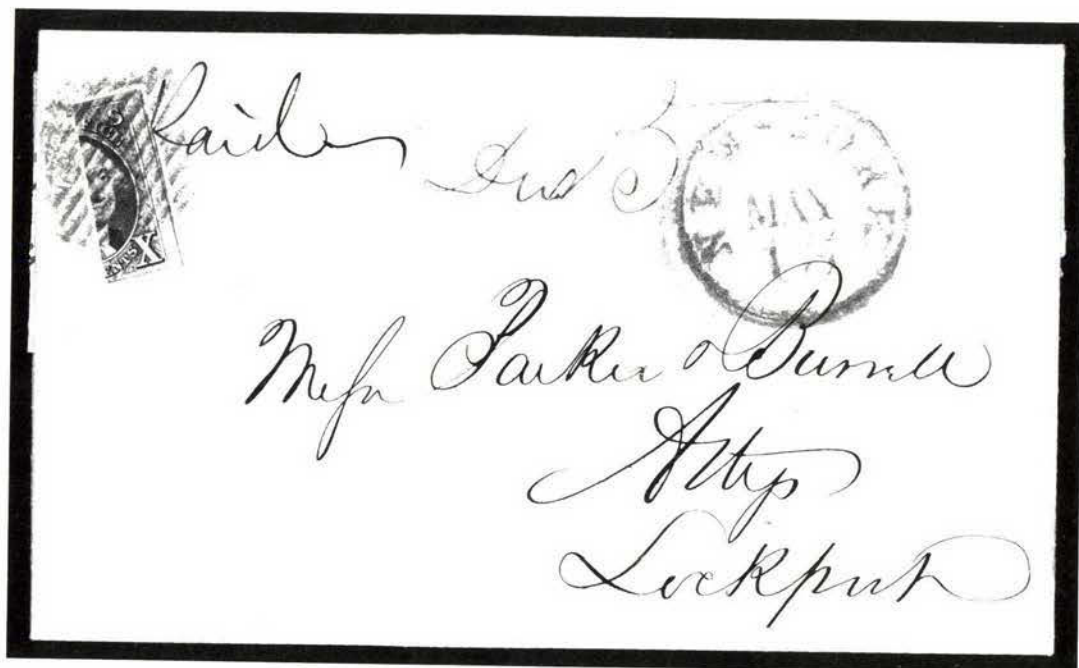 Paid
Due 5
NEW YORK
MAY
X
Messrs Parker & Burrell
Attys
Lockport